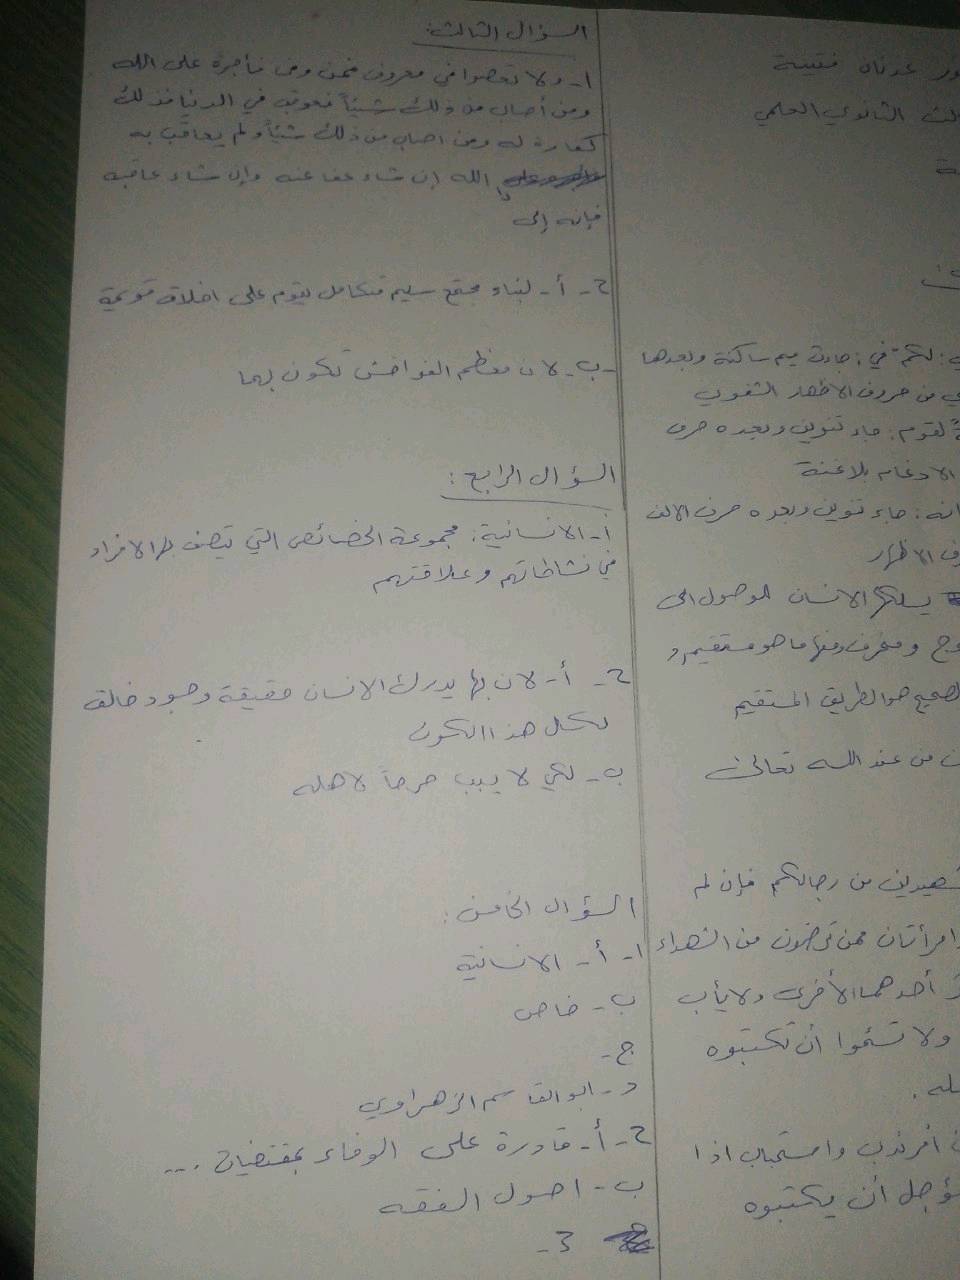 ور عدنان قتيبة
لث الثانوي العلمي
ـة
ي: لكم في: جاءت ميم ساكنة وبعدها
ي من حروف الاظهار الشفوي
ةً لقوم: جاء تنوين وبعده حرف
الادغام بلاغنة
انه: جاء تنوين وبعده حرف الالف
ف الاظهار
يسلكها الانسان للوصول الى
وج ومنحرف ومنها ما هو مستقيم و
لصحيح هو الطريق المستقيم
ـن من عند الله تعالى
شهيدين من رجالكم فإن لم
وامرأتان ممن ترضون من الشهداء
ـر أحدهما الأخرى ولا يأب
ولا تسئموا أن تكتبوه
ـله.
أمر ندب واستحباب اذا
ؤجل أن يكتبوه
السؤال الثالث:
١- ولا تعصوا في معروف فمن وفى فأجره على الله
ومن أصاب من ذلك شيئاً فعوقب في الدنيا فذلك
كفارة له ومن اصاب من ذلك شيئاً ولم يعاقب به
الله إن شاء عفا عنه وإن شاء عاقبه
فإنه إلى
٢- أ- لبناء مجتمع سليم متكامل يقوم على اخلاق قويمة
-ب- لان معظم الفواحش تكون بهما
السؤال الرابع:
أ- الانسانية: مجموعة الخصائص التي يتصف بها الافراد
في نشاطاتهم وعلاقتهم
٢- أ- لان بها يدرك الانسان حقيقة وجود خالق
لكل هذا الكون
ب- لكي لا يسبب حرجاً لاهله
السؤال الخامس:
١- أ- الانسانية
ب- خاص
ج-
د- ابو القاسم الزهراوي
٢- أ- قادرة على الوفاء بمقتضيات ...
ب- اصول الفقه
3-